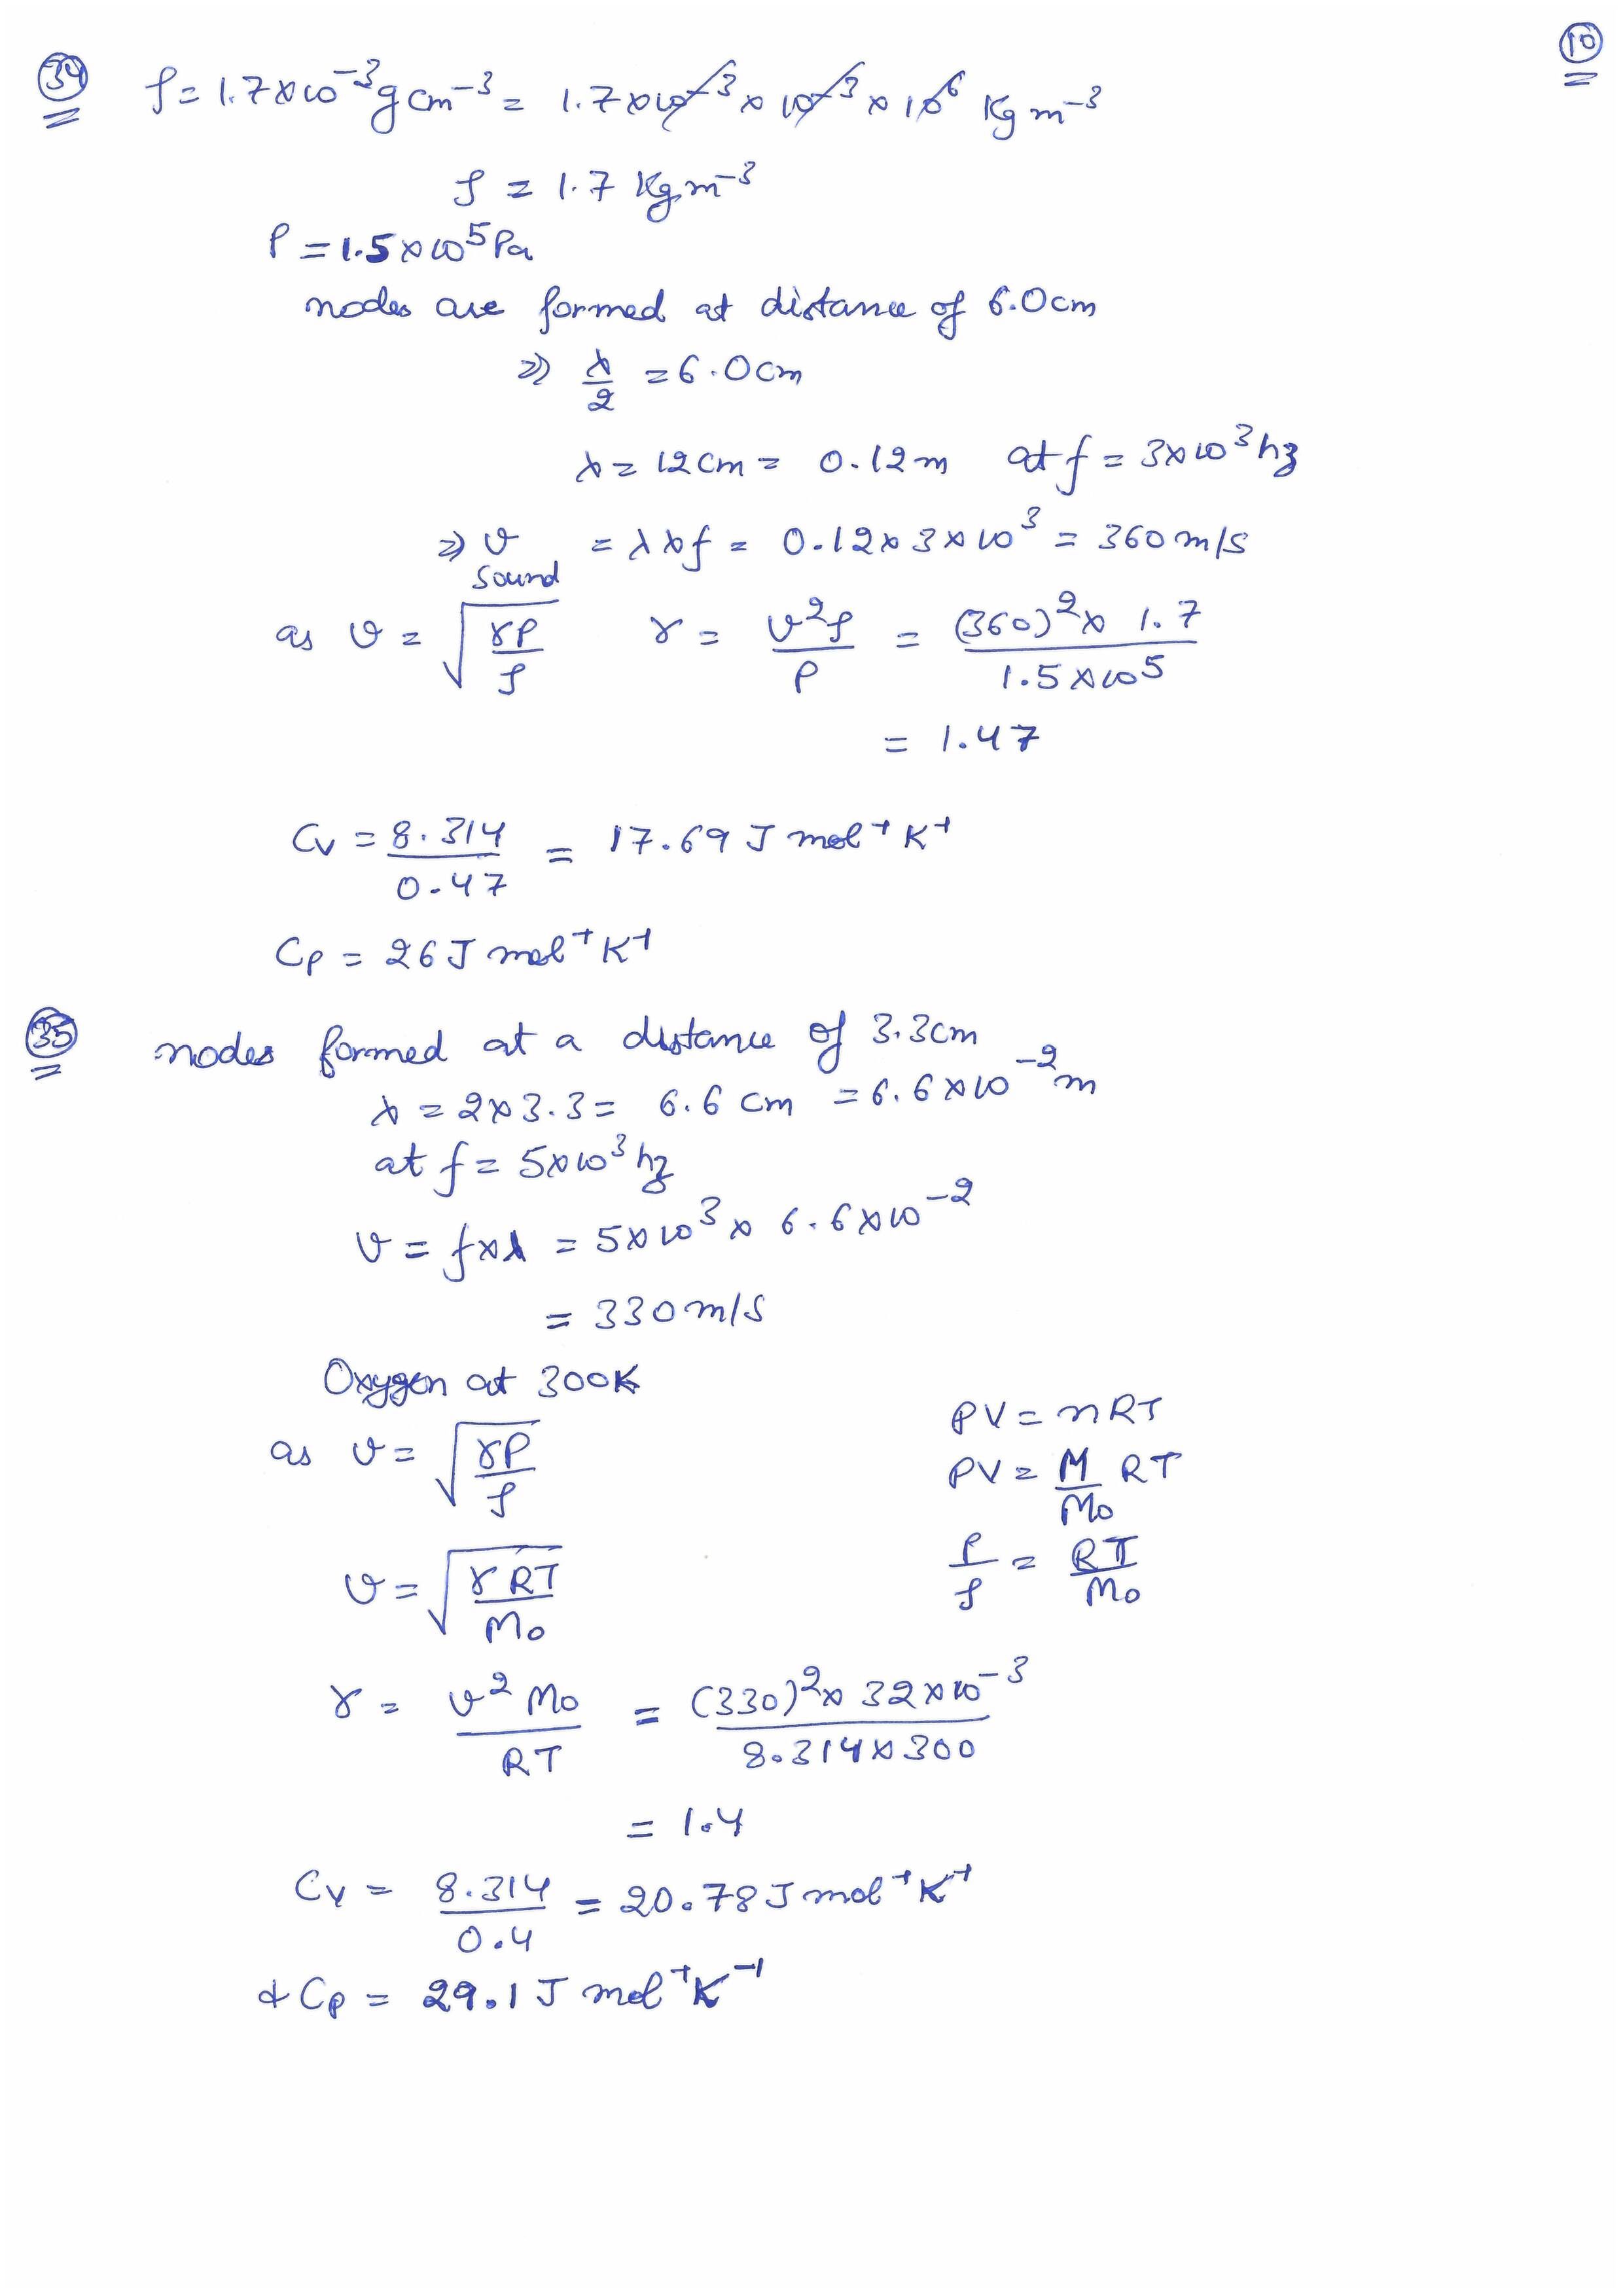 10
34 ρ = 1.7×10⁻³ g cm⁻³ = 1.7×10⁻³ × 10⁻³ × 10⁶ Kg m⁻³
ρ = 1.7 Kg m⁻³
P = 1.5×10⁵ Pa
nodes are formed at distance of 6.0cm
⇒ λ/2 = 6.0cm
λ = 12cm = 0.12m at f = 3×10³ hz
⇒ v sound = λ×f = 0.12×3×10³ = 360 m/s
as v = √(γP/ρ) γ = v²ρ/P = (360)²× 1.7/1.5×10⁵
= 1.47
Cv = 8.314/0.47 = 17.69 J mol⁻¹ K⁻¹
Cp = 26 J mol⁻¹ K⁻¹
35 nodes formed at a distance of 3.3cm
λ = 2×3.3 = 6.6 cm = 6.6×10⁻² m
at f = 5×10³ hz
v = f×λ = 5×10³ × 6.6×10⁻²
= 330 m/s
Oxygen at 300K
as v = √(γP/ρ)
v = √(γRT/Mo)
PV = nRT
PV = M/Mo RT
P/ρ = RT/Mo
γ = v² Mo/RT = (330)²× 32×10⁻³/8.314×300
= 1.4
Cv = 8.314/0.4 = 20.78 J mol⁻¹ K⁻¹
& Cp = 29.1 J mol⁻¹ K⁻¹